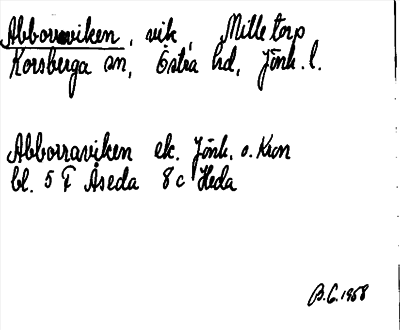 Abborraviken, vik, Milletorp
Korsberga sn, Östra hd, Jönk. l.
Abborraviken ek. Jönk. o. Kron
bl. 5 F Åseda 8 c Heda
B.G. 1958